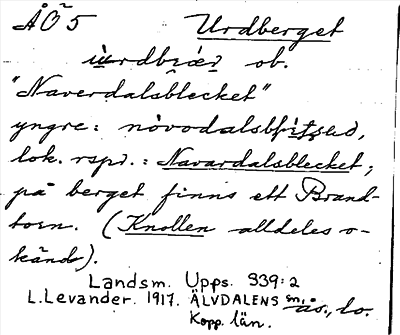 ÅÖ 5 Urdberget
ùrdbrær ob.
"Naverdalsblecket"
yngre: nòvodalsb
lok. rspr.: Navardalsblecket;
på berget finns ett Brand-
torn. (Knollen alldeles o-
känd).
Landsm. Upps. 939:2
L.Levander. 1917. ÄLVDALENS sn., äs., lo.
Kopp. län.